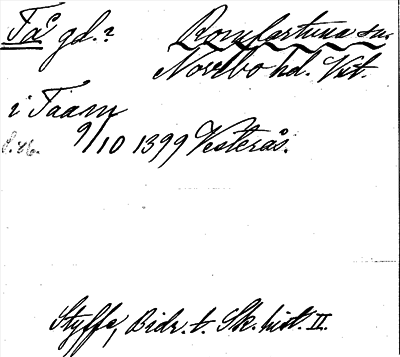 Tå gd.? Romfartuna sn.
Norrbo hd. Vst.
i Taam
9/10 1399 Vesterås.
Styffe, Bidr. t. Sk. hist. II.